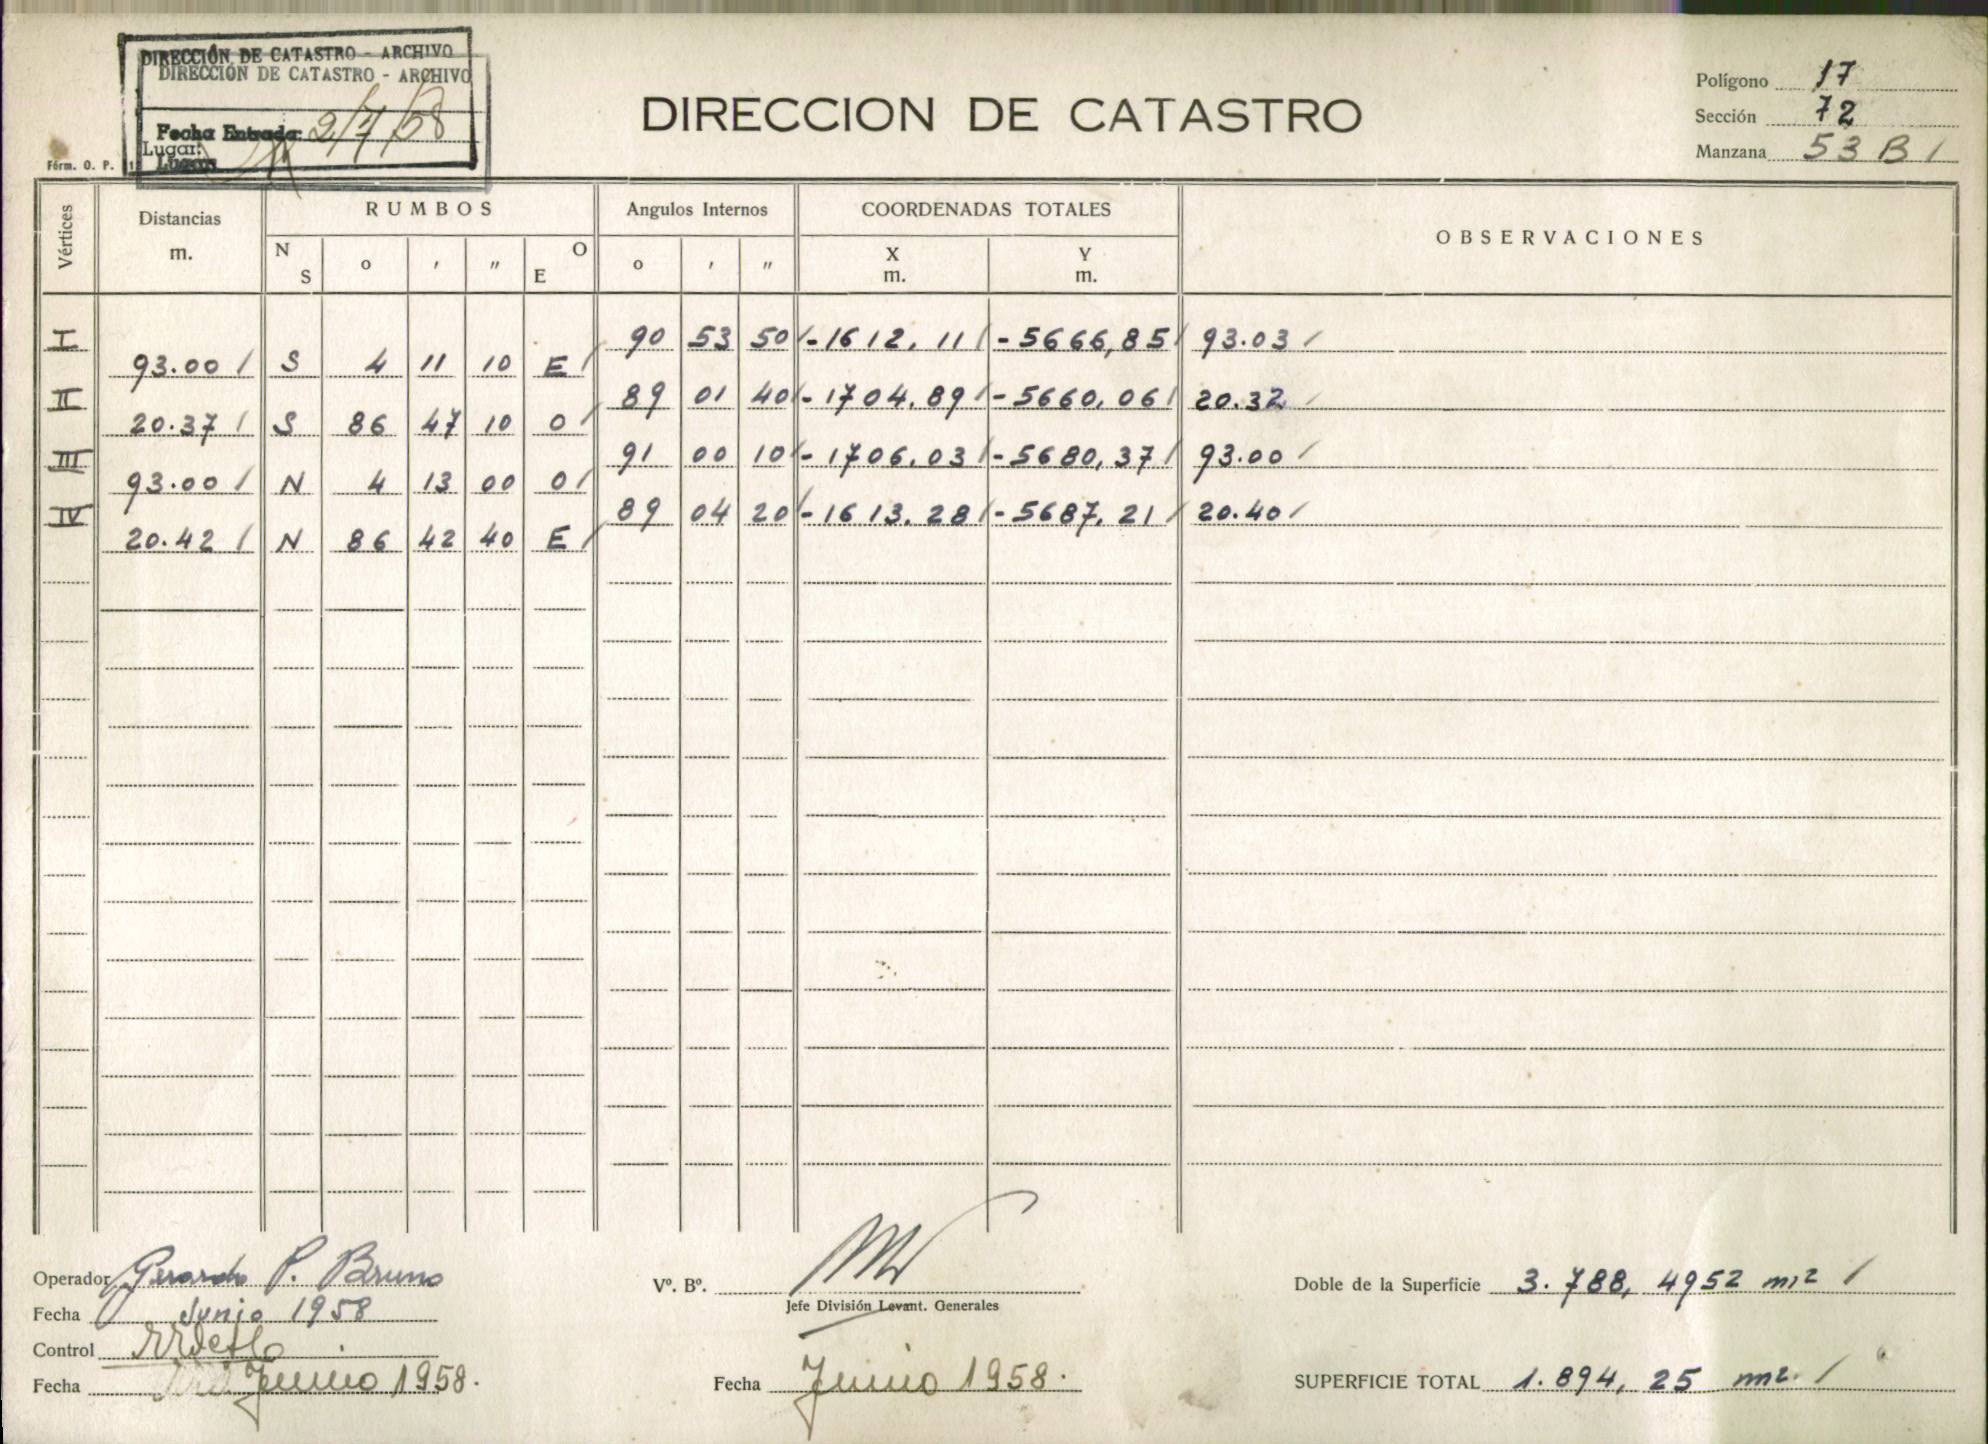 DIRECCIÓN DE CATASTRO - ARCHIVO
DIRECCIÓN DE CATASTRO - ARCHIVO
Fecha Entrada: 2/7/58
Lugar:
Lugar
Fórm. O. P.
DIRECCION DE CATASTRO
Polígono 17
Sección 72
Manzana 53 B /
Vértices Distancias m. RUMBOS Angulos Internos COORDENADAS TOTALES OBSERVACIONES
N S o ′ ″ O E o ′ ″ X m. Y m.
I 90 53 50 /-1612,11 / -5666,85 / 93.03 /
93.00 / S 4 11 10 E /
II 89 01 40 /-1704,89 / -5660,06 / 20.32 /
20.37 / S 86 47 10 O /
III 91 00 10 /-1706,03 / -5680,37 / 93.00 /
93.00 / N 4 13 00 O /
IV 89 04 20 /-1613,28 / -5687,21 / 20.40 /
20.42 / N 86 42 40 E /
Operador Gerardo P. Bruno
Fecha Junio 1958
Control
Fecha Junio 1958.
Vº. Bº.
Jefe División Levant. Generales
Fecha Junio 1958.
Doble de la Superficie 3.788,4952 m2 /
SUPERFICIE TOTAL 1.894,25 m2. /